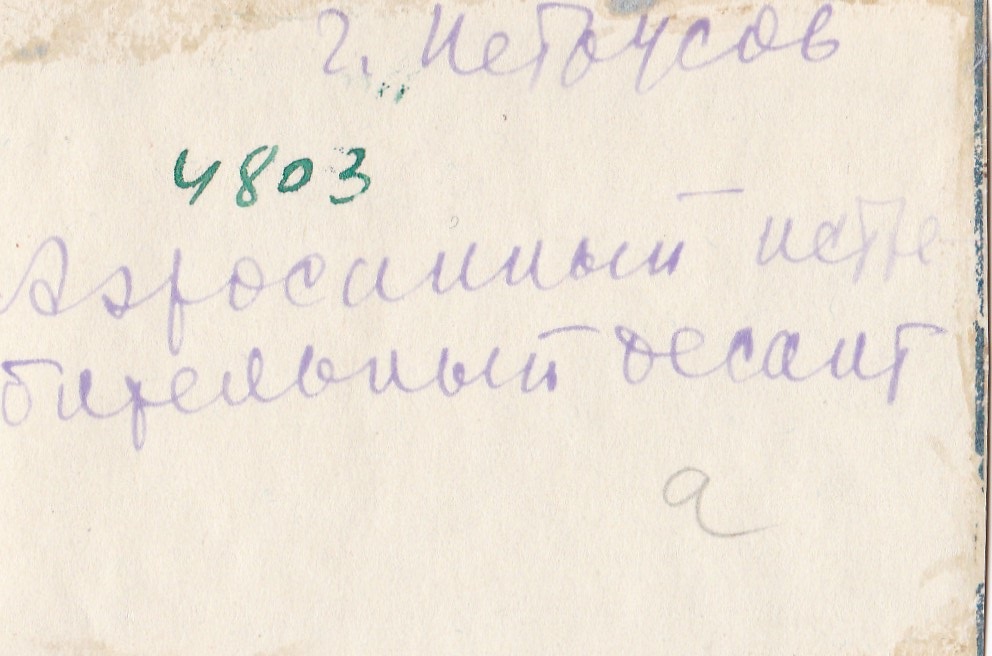 Г. Петрусов
4803
Аэросанный истре
бительный десант
а